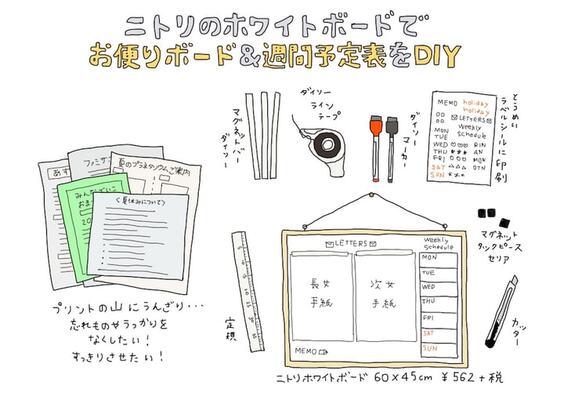 ニトリのホワイトボードで
お便りボード&週間予定表をDIY
ダイソー
ライン
テープ
マグネットバー
ダイソー
ダイソー
マーカー
MEMO holiday
holiday
LETTERS
weekly
schedule
MON
TUE
WED
THU
FRI
SAT
SUN
とうめい
ラベルシールに
印刷
ファミサ
夏のプラネタリウムご案内
あす
みんなでいこ
おま
20
<夏休みについて>
プリントの山にうんざり・・・
忘れものやうっかりを
なくしたい!
すっきりさせたい!
定規
LETTERS
長女
手紙
次女
手紙
MEMO
weekly
schedule
MON
TUE
WED
THU
FRI
SAT
SUN
マグネット
タックピース
セリア
カッター
ニトリホワイトボード 60×45cm ¥562+税